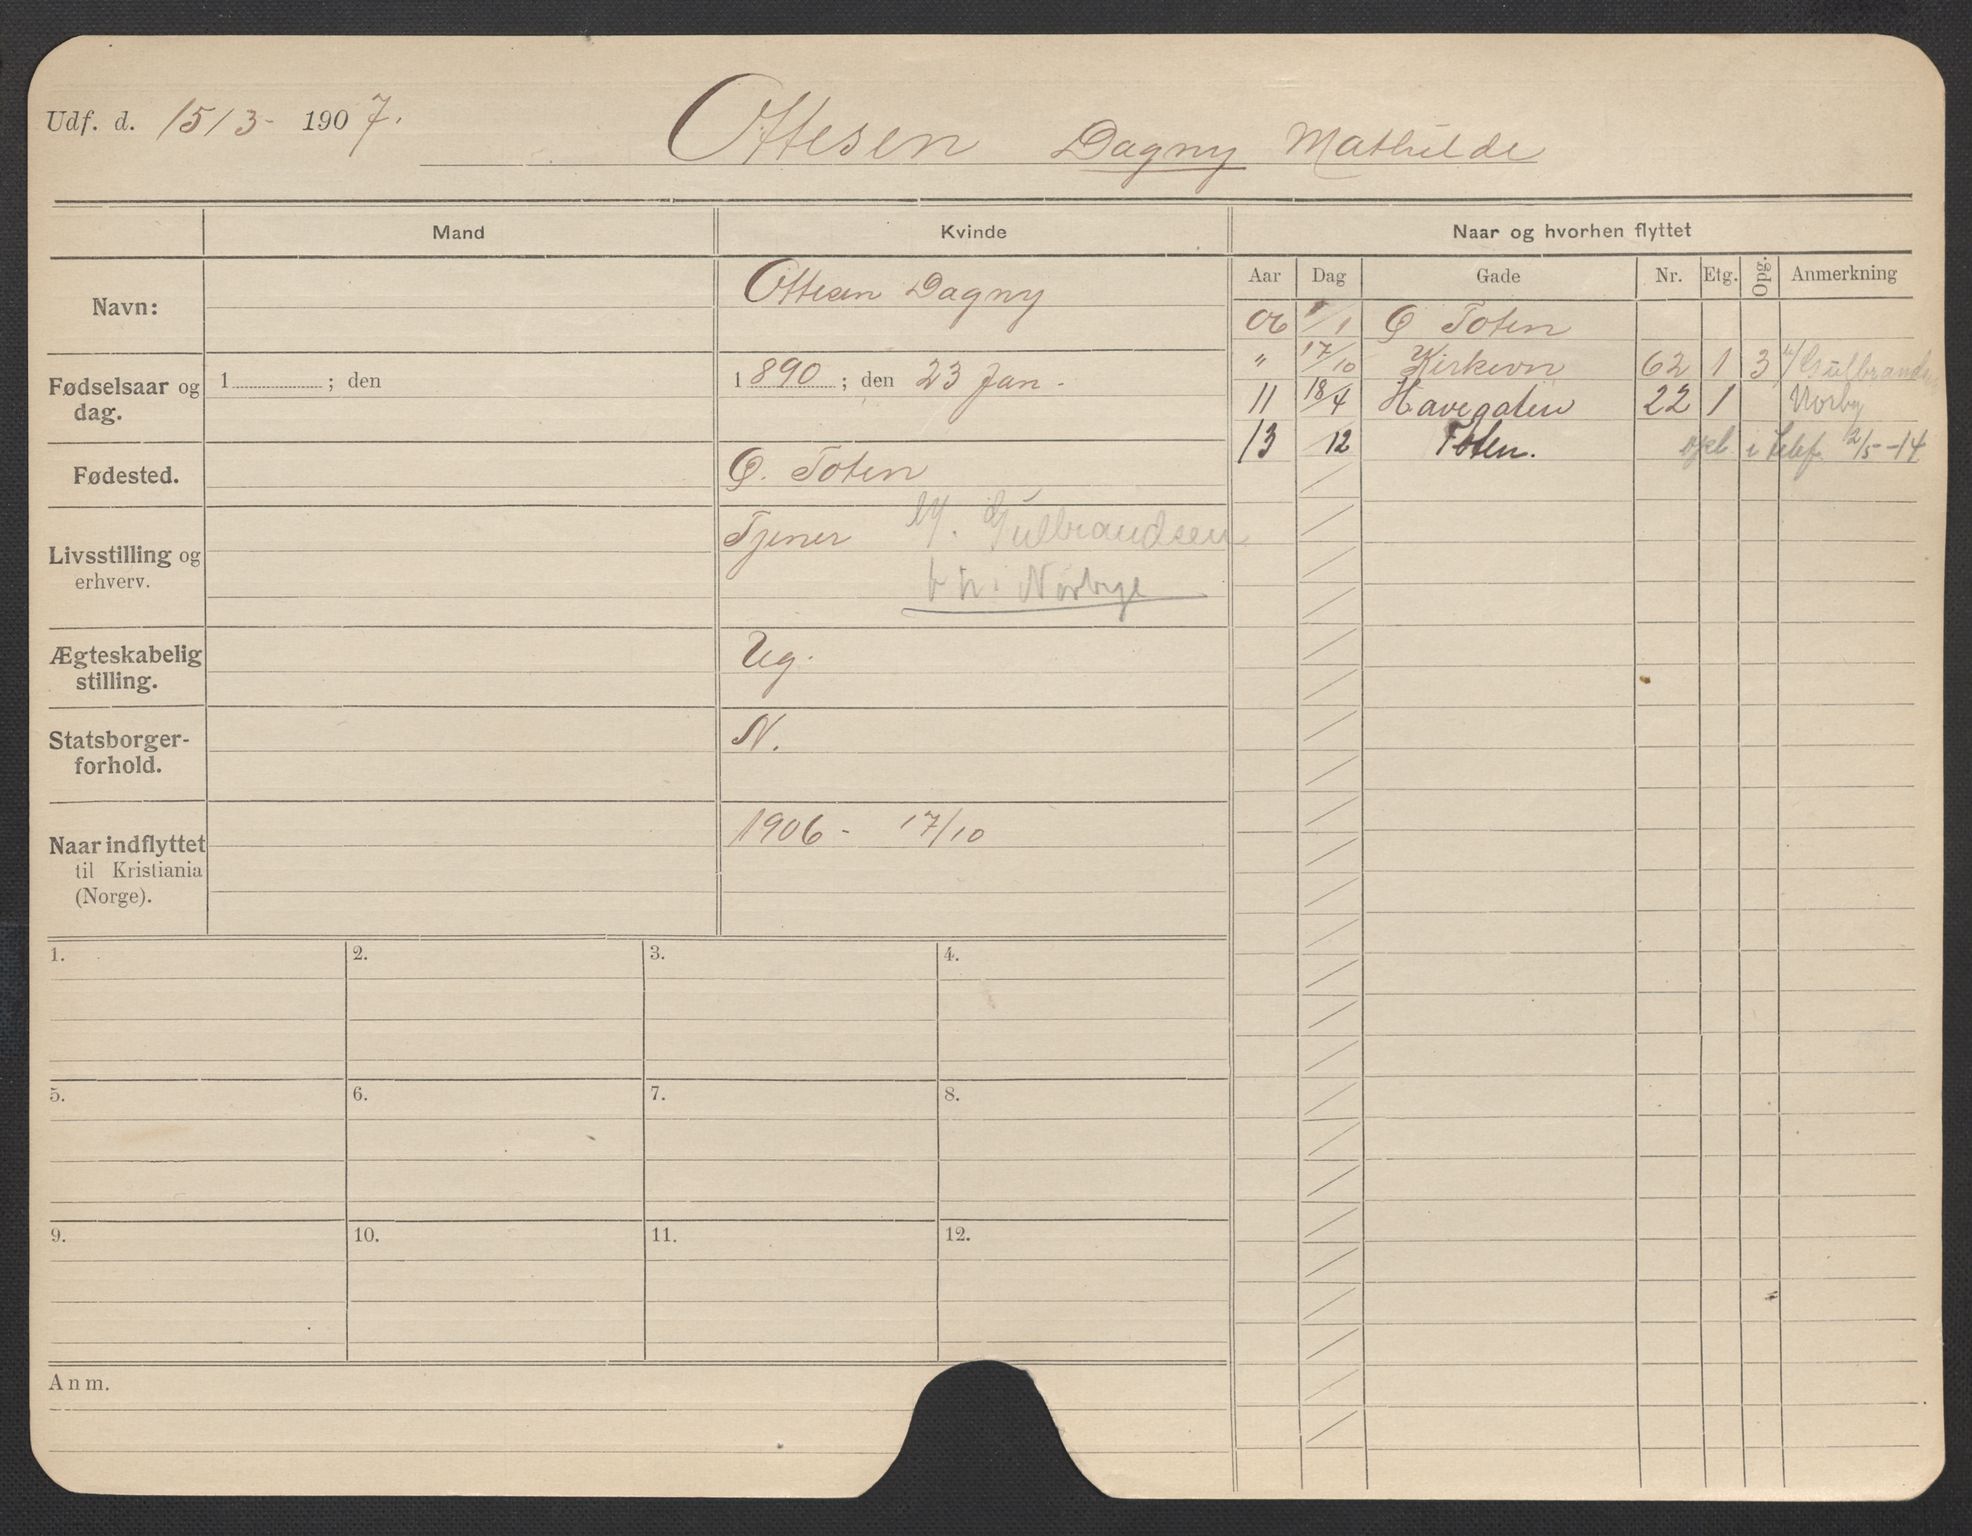 Udf. d. 15/3- 1907.
Ottesen Dagny Mathilde
Mand
Kvinde
Naar og hvorhen flyttet
Navn:
Ottesen Dagny
Fødselsaar og dag.
1 ; den
1890 ; den 23 Jan.
Fødested.
Ø. Toten
Livsstilling og erhverv.
Tjener Gulbrandsen
Norbye
Ægteskabelig stilling.
Ug.
Statsborgerforhold.
N.
Naar indflyttet til Kristiania (Norge).
1906 - 17/10
Aar Dag Gade Nr. Etg. Opg. Anmerkning
06 1/1 Ø Toten
" 17/10 Kirkevn 62 1 3 Gulbrandsen
11 18/4 Havegaten 22 1 Norby
13 /12 Toten. opl. i Telef. 12/5 -14
1. 2. 3. 4.
5. 6. 7. 8.
9. 10. 11. 12.
Anm.